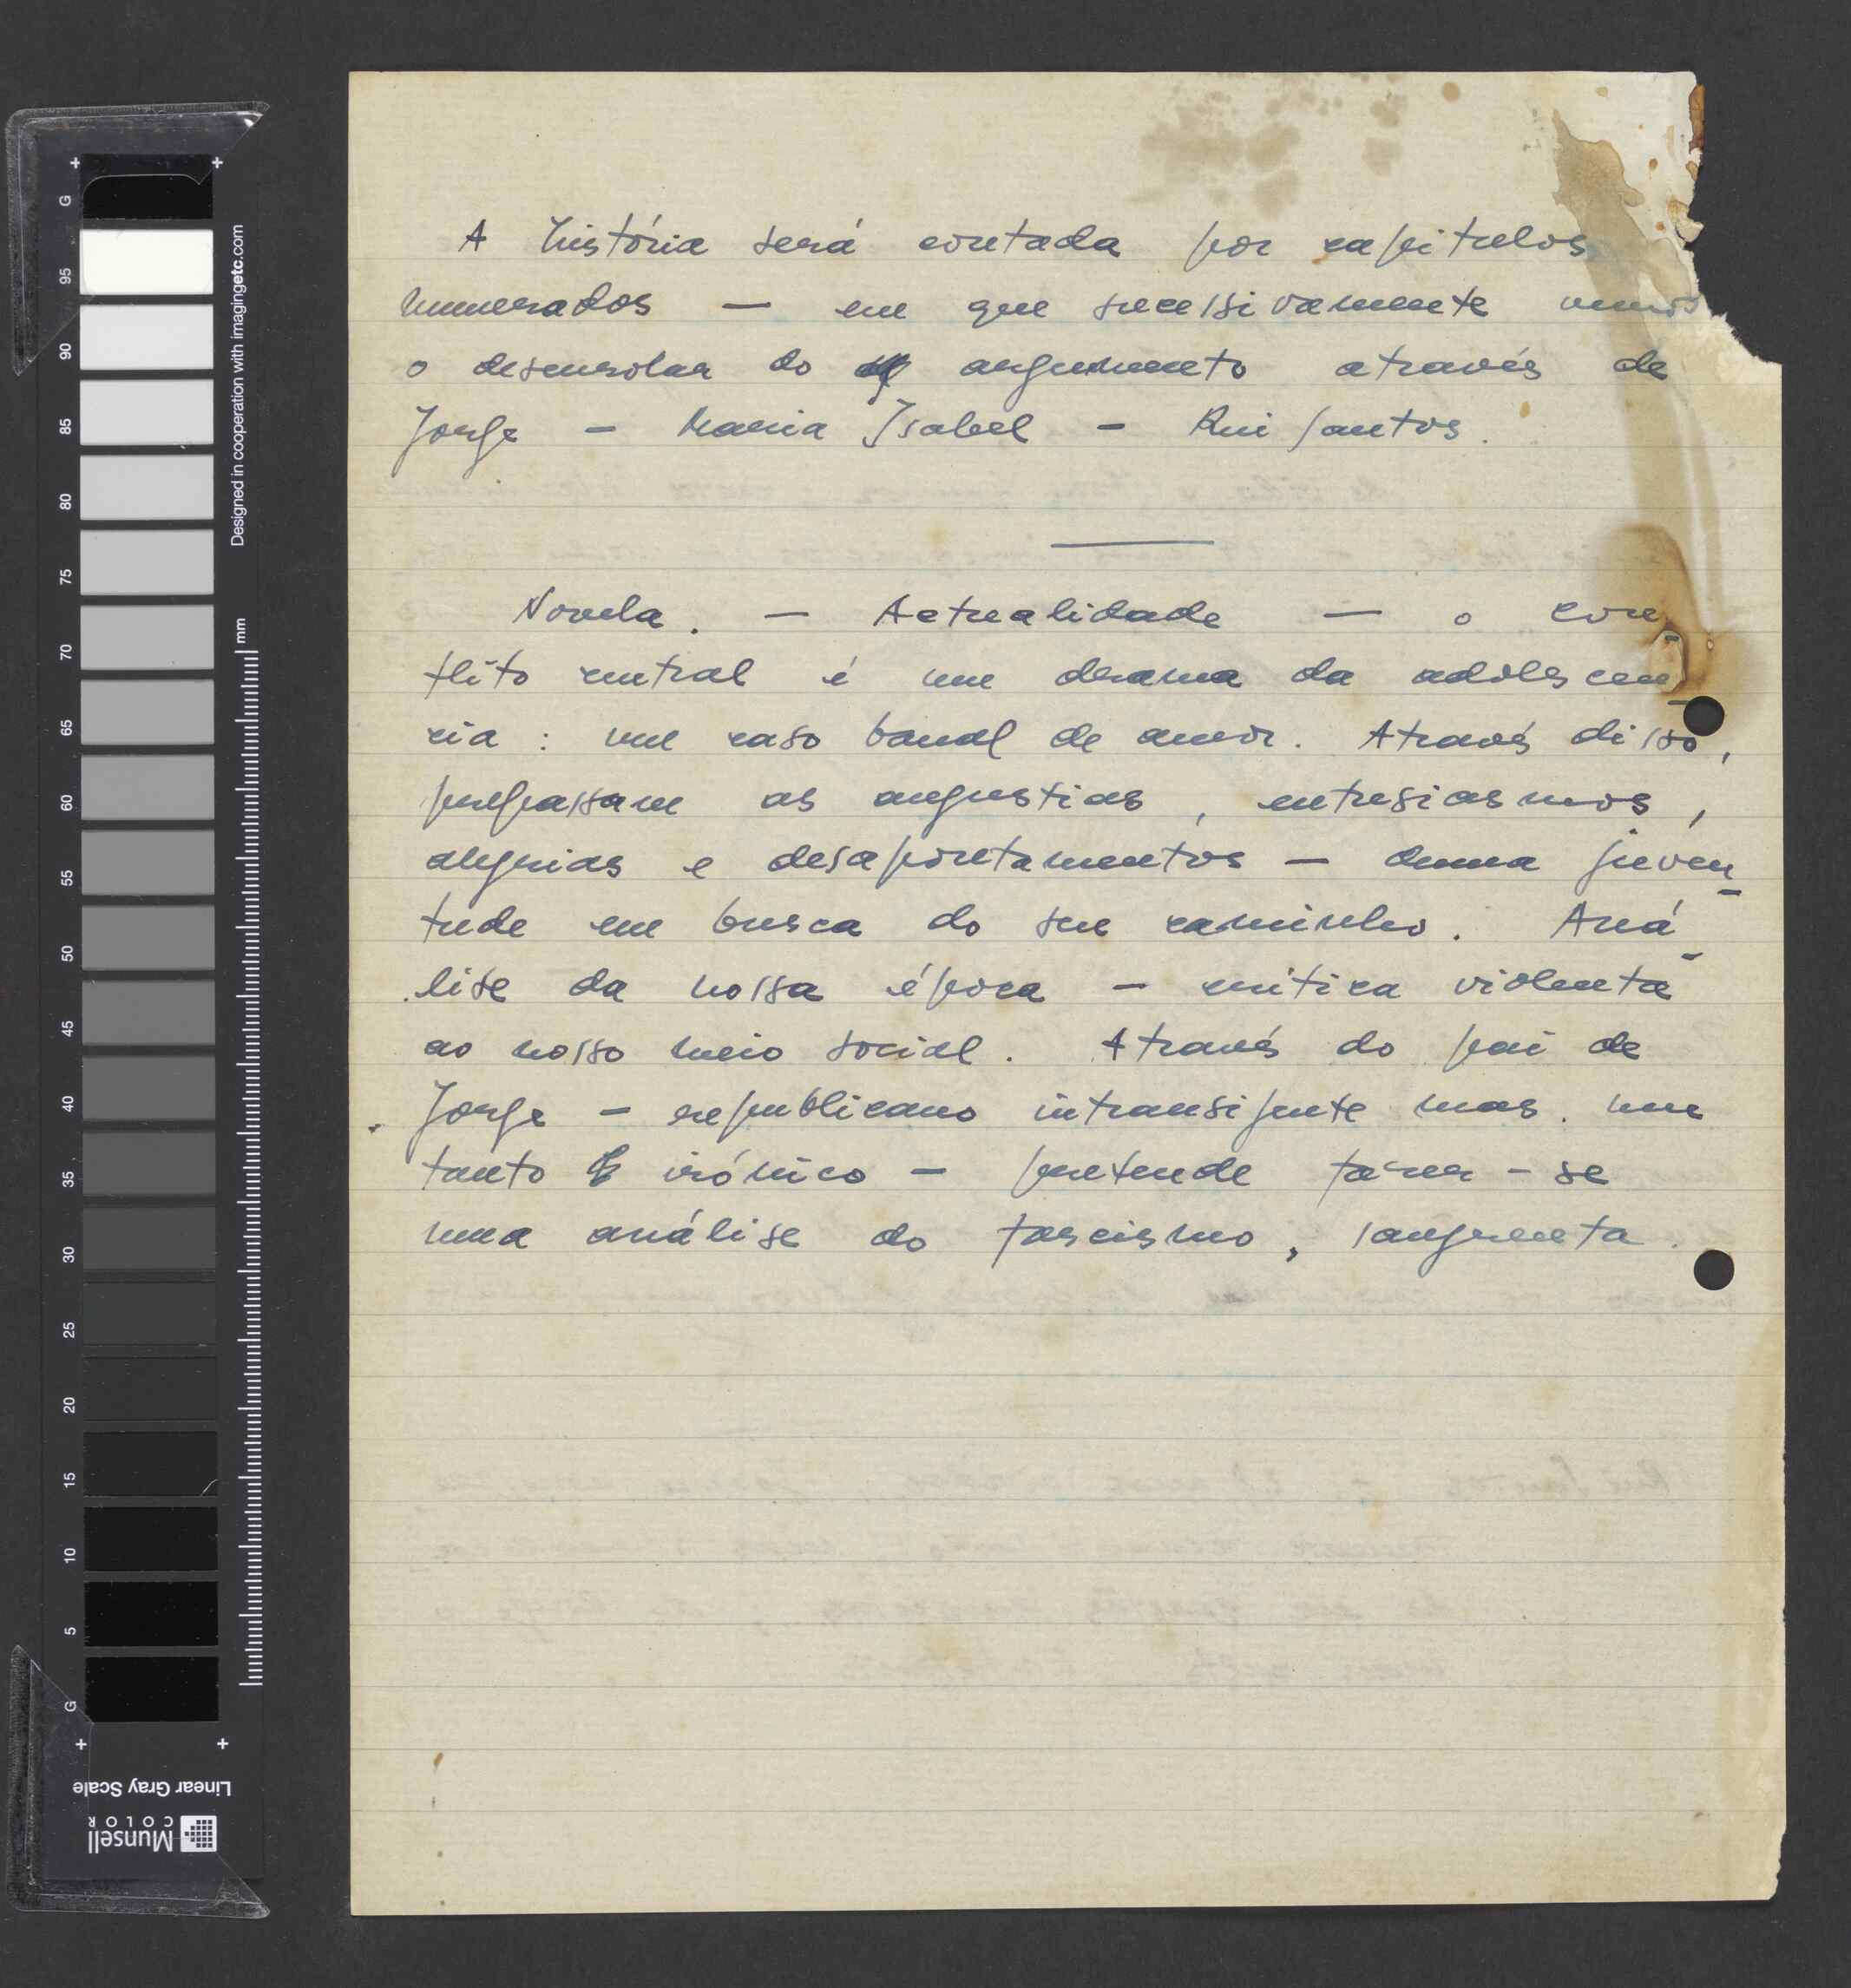 A história será contada por capitulos
numerados — em que sucessivamente vemos
o desenrolar do argumento através de
Jorge — Maria Isabel — Rui Santos.
Novela. — Actualidade — o con-
flito central é um drama da adolescen-
cia : um caso banal de amor. Através disso,
perpassam as angustias, entusiasmos,
alegrias e desapontamentos — duma juven-
tude em busca do seu caminho. Aná-
lise da nossa época — critica violenta
ao nosso meio social. Através do pai de
Jorge — republicano intransigente mas um
tanto irónico — pretende fazer-se
uma análise do fascismo, sangrenta.
G
95
90
85
80
75
70
65
60
55
50
45
40
35
30
25
20
15
10
5
G
mm
Designed in cooperation with imagingetc.com
Linear Gray Scale
Munsell
COLOR